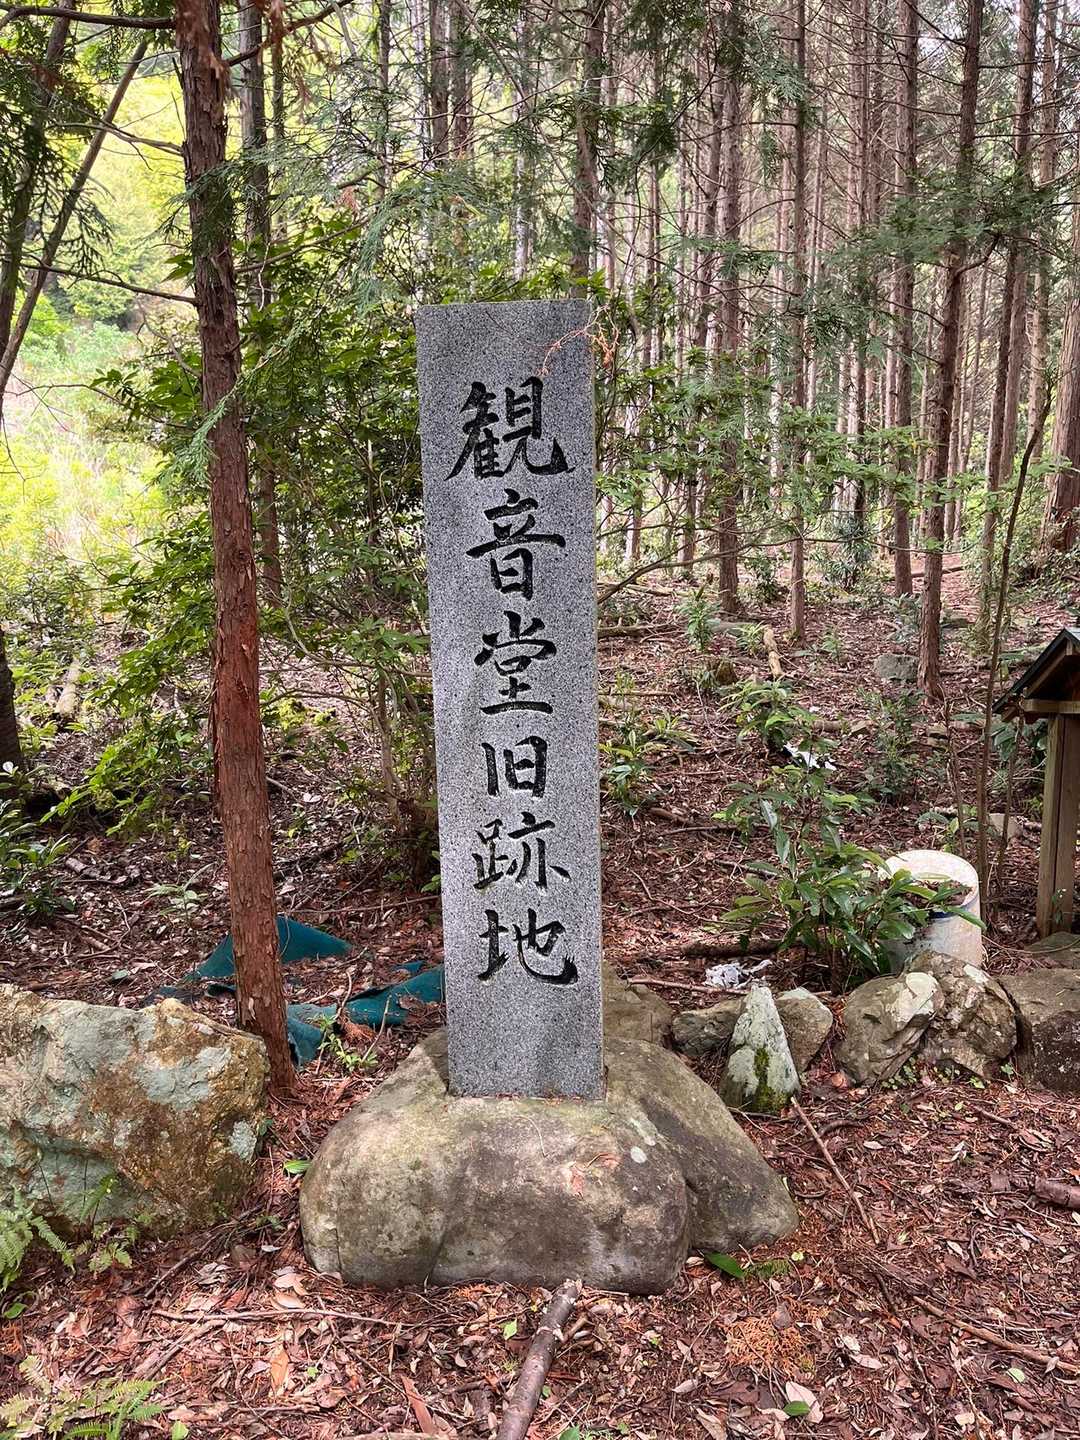 観音堂旧跡地